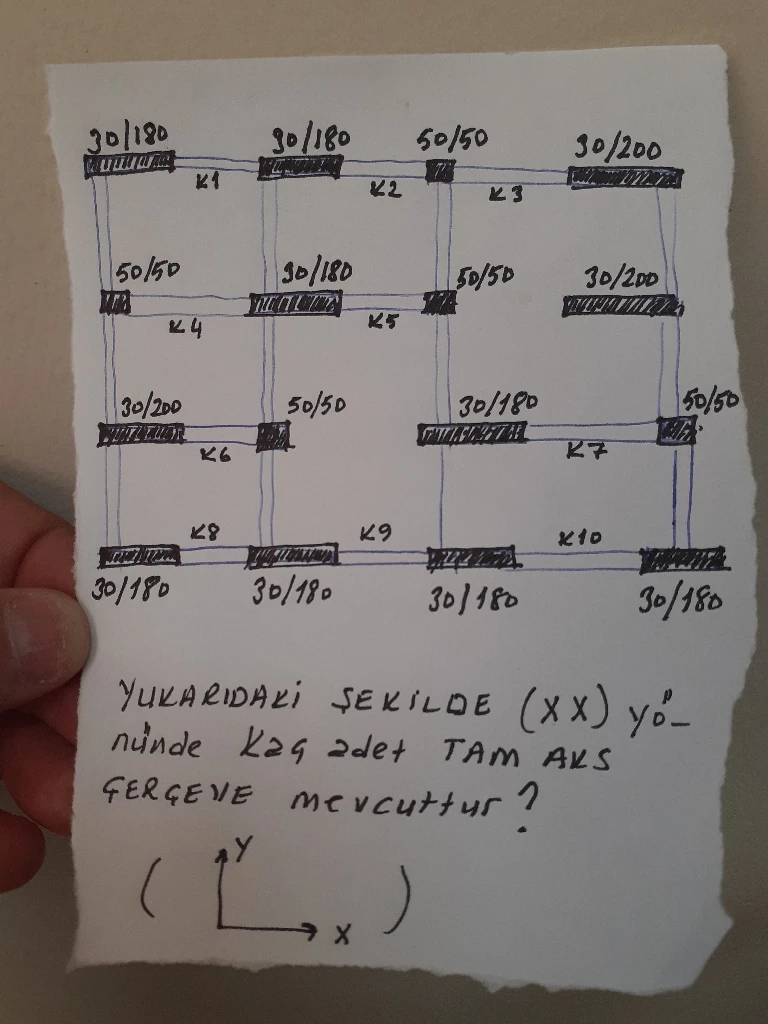 30/180 30/180 50/50 30/200
K1 K2 K3
50/50 30/180 50/50 30/200
K4 K5
30/200 50/50 30/180 50/50
K6 K7
K8 K9 K10
30/180 30/180 30/180 30/180
YUKARIDAKi ŞEKiLDE (XX) yö-
nünde Kaç adet TAM AKS
ÇERÇEVE mevcuttur?
( Y
X )